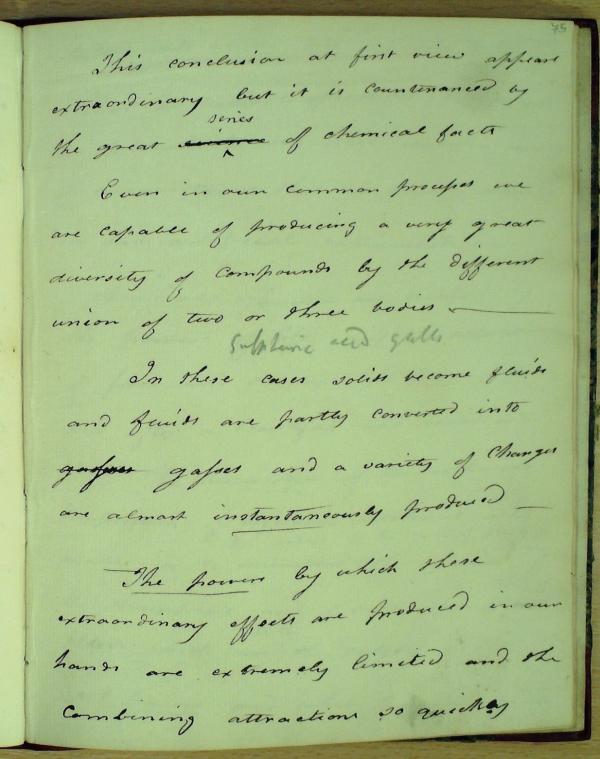 75
This conclusion at first view appears
extraordinary but it is countenanced by
series
the great science of chemical facts
Even in our common processes we
are capable of producing a very great
diversity of compounds by the different
union of two or three bodies —
Sulphuric acid galls
In these cases solids become fluids
and fluids are partly converted into
gasses gasses and a variety of changes
are almost instantaneously produced —
The powers by which these
extraordinary effects are produced in our
hands are extremely limited and the
combining attractions so quickly